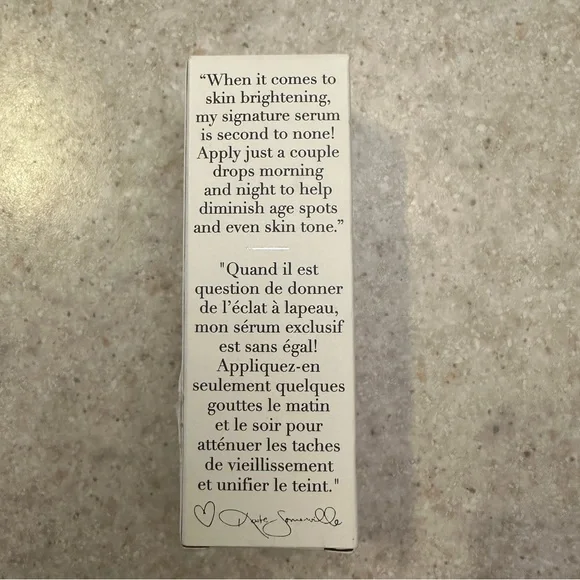 “When it comes to
skin brightening,
my signature serum
is second to none!
Apply just a couple
drops morning
and night to help
diminish age spots
and even skin tone.”
"Quand il est
question de donner
de l’éclat à lapeau,
mon sérum exclusif
est sans égal!
Appliquez-en
seulement quelques
gouttes le matin
et le soir pour
atténuer les taches
de vieillissement
et unifier le teint."
Kate Somerville